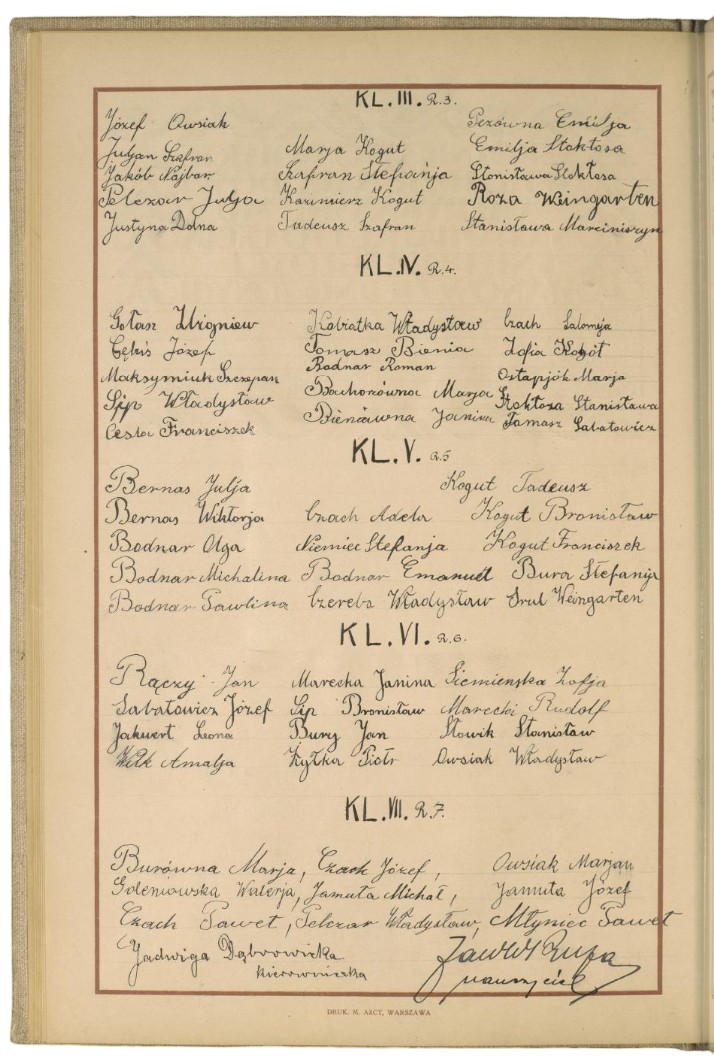 KL. III. R.3.
Józef Owsiak Pezówna Emilja
Juljan Szafran Marja Kogut Emilja Stokłosa
Jakób Najbar Szafran Stefańja Stanisława Stokłosa
Pelczar Julja Kazimierz Kogut Roza Weingarten
Justyna Dolna Tadeusz Szafran Stanisława Marciniszyn
KL. IV. R.4.
Gołan Zbigniew Kobiałka Władysław Czach Salomeja
Józef Tomasz Bienia Zofia
Maksymiuk Szczepan Bodnar Roman Ostapjók Marja
Sip Władysław Bachorówna Marja Stokłosa Stanisława
Cesla Franciszek Bieniówna Janina Tomasz Sabatowicz
KL. V. R.5
Bernas Julja Kogut Tadeusz
Bernas Wiktorja Czach Adela Kogut Bronisław
Bodnar Olga Niemiec Stefanja Kogut Franciszek
Bodnar Michalina Bodnar Emanuel Bura Stefanja
Bodnar Pawlina Czereba Władysław Srul Weingarten
KL. VI. R.6.
Rączy Jan Marecka Janina Siemienska Zofja
Sabatowicz Józef Sip Bronisław Marecki Rudolf
Jakwert Leona Bury Jan Słowik Stanisław
Wilk Amalja Żyłka Piotr Owsiak Władysław
KL. VII. R.7.
Burówna Marja, Czach Józef, Owsiak Marjan
Goleniowska Walerja, Jamuła Michał, Jamuła Józef
Czach Paweł, Pelczar Władysław, Młyniec Paweł
Jadwiga Dąbrowicka
kierowniczka nauczyciel
DRUK. M. ARCT, WARSZAWA